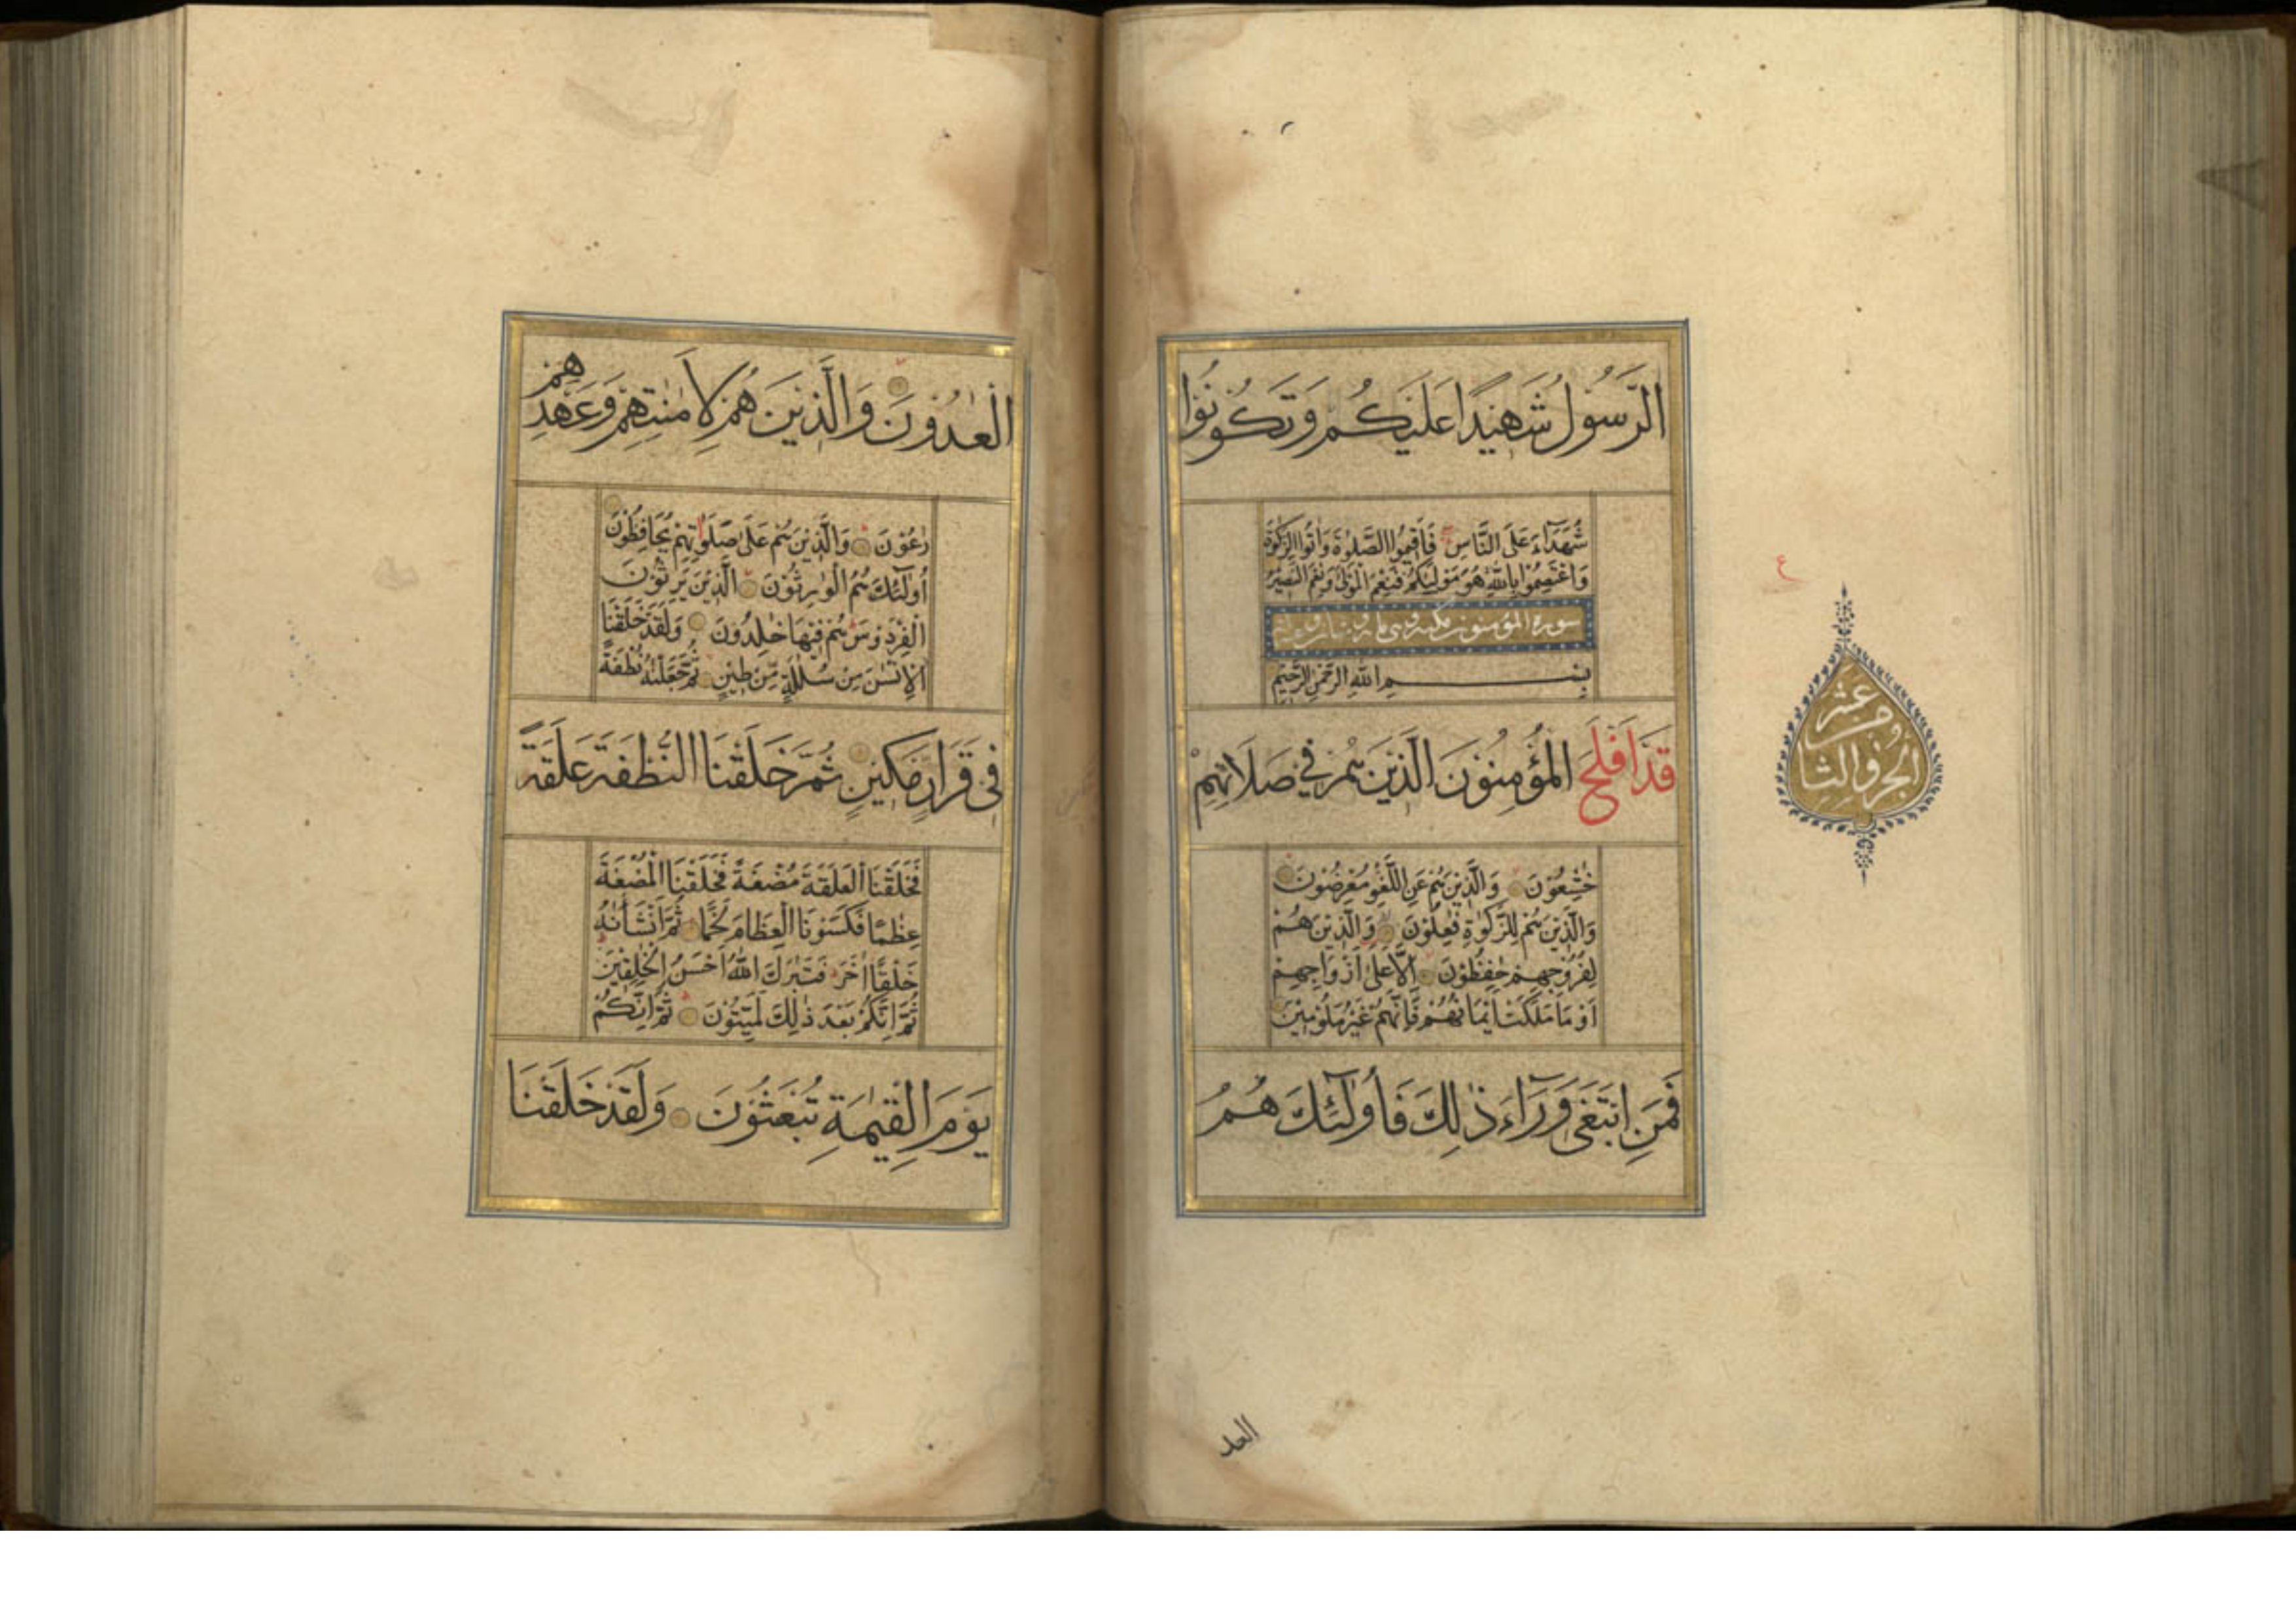 الرَّسُوْلُ شَهِيْدًا عَلَيْكُمْ وَتَكُوْنُوْا
شُهَدَآءَ عَلَى النَّاسِ فَاَقِيْمُوا الصَّلٰوةَ وَاٰتُوا الزَّكٰوةَ
وَاعْتَصِمُوْا بِاللّٰهِ هُوَ مَوْلٰىكُمْ فَنِعْمَ الْمَوْلٰى وَنِعْمَ النَّصِيْرُ
سورة المؤمنون مكية وهي ماية
بِسْمِ اللّٰهِ الرَّحْمٰنِ الرَّحِيْمِ
قَدْ اَفْلَحَ الْمُؤْمِنُوْنَ الَّذِيْنَ هُمْ فِيْ صَلَاتِهِمْ
خٰشِعُوْنَ وَالَّذِيْنَ هُمْ عَنِ اللَّغْوِ مُعْرِضُوْنَ
وَالَّذِيْنَ هُمْ لِلزَّكٰوةِ فٰعِلُوْنَ وَالَّذِيْنَ هُمْ
لِفُرُوْجِهِمْ حٰفِظُوْنَ اِلَّا عَلٰى اَزْوَاجِهِمْ
اَوْ مَا مَلَكَتْ اَيْمَانُهُمْ فَاِنَّهُمْ غَيْرُ مَلُوْمِيْنَ
فَمَنِ ابْتَغٰى وَرَآءَ ذٰلِكَ فَأُولٰٓئِكَ هُمُ
العد
ع
الجزو الثامن عشر
الْعٰدُوْنَ وَالَّذِيْنَ هُمْ لِاَمٰنٰتِهِمْ وَعَهْدِهِمْ
رٰعُوْنَ وَالَّذِيْنَ هُمْ عَلٰى صَلَوٰتِهِمْ يُحَافِظُوْنَ
اُولٰٓئِكَ هُمُ الْوٰرِثُوْنَ الَّذِيْنَ يَرِثُوْنَ
الْفِرْدَوْسَ هُمْ فِيْهَا خٰلِدُوْنَ وَلَقَدْ خَلَقْنَا
الْاِنْسٰنَ مِنْ سُلٰلَةٍ مِّنْ طِيْنٍ ثُمَّ جَعَلْنٰهُ نُطْفَةً
فِيْ قَرَارٍ مَّكِيْنٍ ثُمَّ خَلَقْنَا النُّطْفَةَ عَلَقَةً
فَخَلَقْنَا الْعَلَقَةَ مُضْغَةً فَخَلَقْنَا الْمُضْغَةَ
عِظٰمًا فَكَسَوْنَا الْعِظَامَ لَحْمًا ثُمَّ اَنْشَأْنٰهُ
خَلْقًا اٰخَرَ فَتَبٰرَكَ اللّٰهُ اَحْسَنُ الْخٰلِقِيْنَ
ثُمَّ اِنَّكُمْ بَعْدَ ذٰلِكَ لَمَيِّتُوْنَ ثُمَّ اِنَّكُمْ
يَوْمَ الْقِيٰمَةِ تُبْعَثُوْنَ وَلَقَدْ خَلَقْنَا